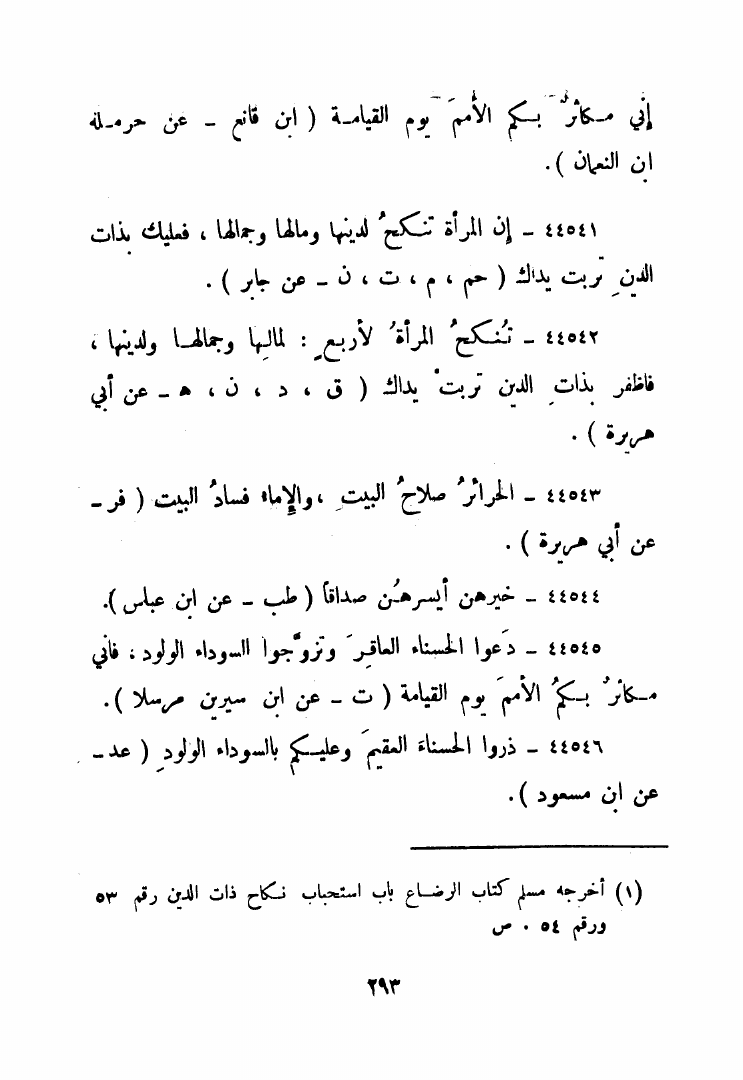 إنِّي مكاثرٌ بكم الأممَ يوم القيامة ( ابن قانع - عن حرملة
ابن النعمان ) .
٤٤٥٤١ - إن المرأة تنكحُ لدينها ومالها وجمالها ، فعليك بذات
الدينِ تربت يداك ( حم ، م ، ت ، ن - عن جابر ) .
٤٤٥٤٢ - تُنكحُ المرأةُ لأربعٍ : لمالِها وجمالها ولدينها ،
فاظفر بذاتِ الدين تربتْ يداك ( ق ، د ، ن ، هـ - عن أبي
هريرة ) .
٤٤٥٤٣ - الحرائرُ صلاحُ البيتِ ، والإماء فسادُ البيت ( فر -
عن أبي هريرة ) .
٤٤٥٤٤ - خيرهن أيسرهُن صداقاً ( طب - عن ابن عباس ) .
٤٤٥٤٥ - دَعوا الحسناء العاقِرَ وتزوَّجوا السوداء الولود ، فاني
مكاثرٌ بكمُ الأممَ يوم القيامة ( ت - عن ابن سيرين مرسلا ) .
٤٤٥٤٦ - ذروا الحسناءَ العقيمَ وعليكم بالسوداء الولودِ ( عد -
عن ابن مسعود ) .
(١) أخرجه مسلم كتاب الرضاع باب استحباب نكاح ذات الدين رقم ٥٣
ورقم ٥٤ . ص
٢٩٣